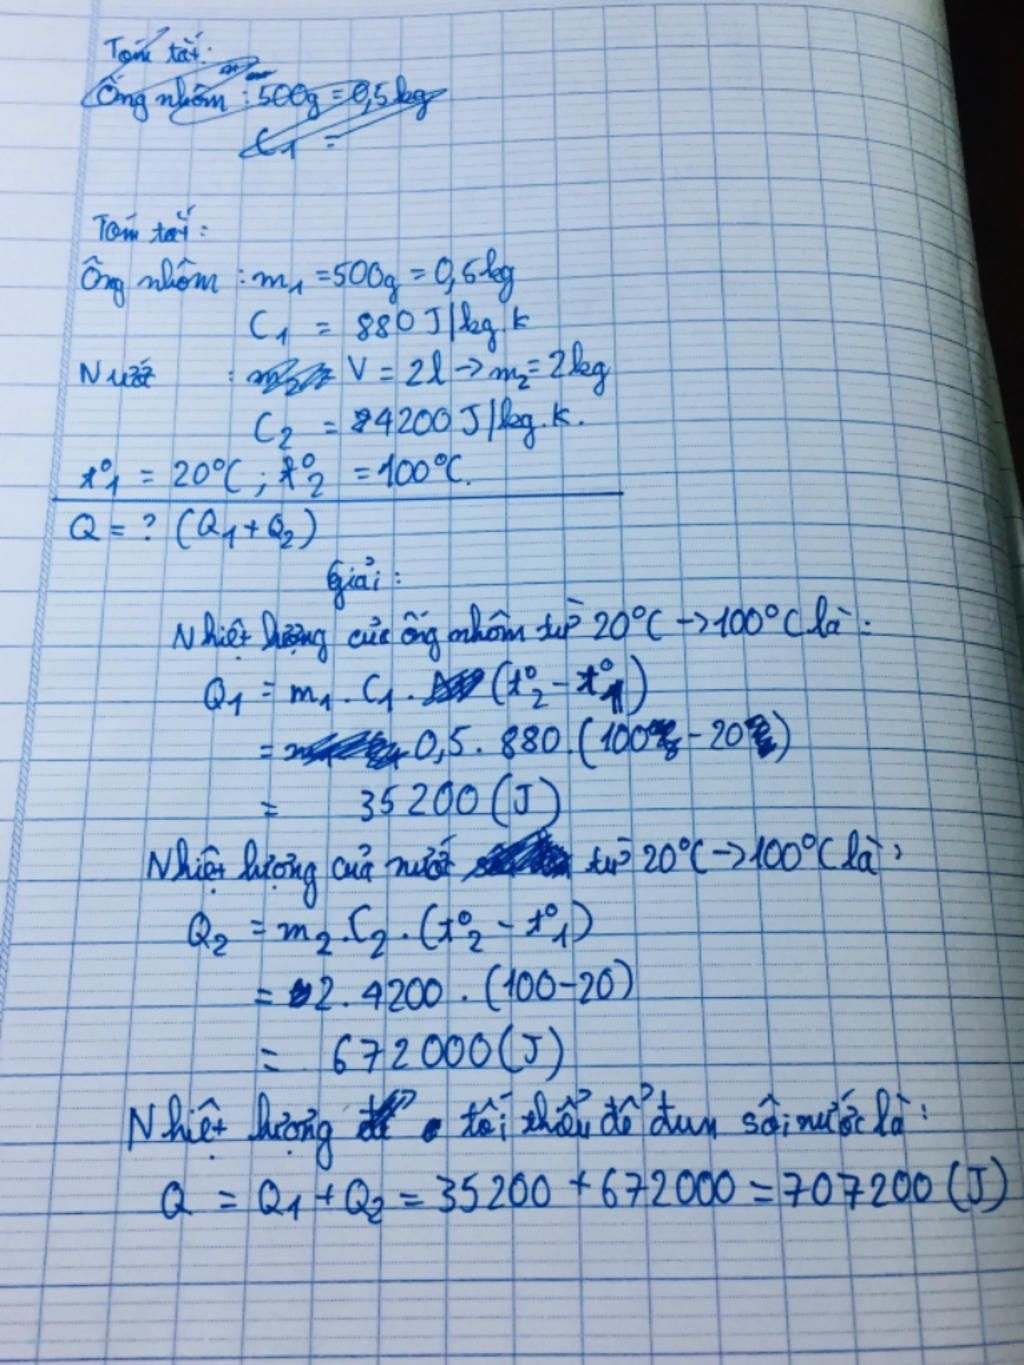 Tóm tắt:
Ống nhôm : 500g = 0,5kg
C1 =
Tóm tắt:
Ông nhôm : m1 = 500g = 0,5kg
C1 = 880 J/kg.k
Nước : V = 2l → m2 = 2kg
C2 = 4200 J/kg.k.
t°1 = 20°C ; t°2 = 100°C.
Q = ? (Q1 + Q2)
Giải :
Nhiệt lượng của ống nhôm từ 20°C → 100°C là:
Q1 = m1 . C1 . (t°2 - t°1)
= 0,5 . 880 . (100 - 20)
= 35200 (J)
Nhiệt lượng của nước từ 20°C → 100°C là:
Q2 = m2 . C2 . (t°2 - t°1)
= 2 . 4200 . (100 - 20)
= 672000 (J)
Nhiệt lượng tối thểu để đun sôi nước là:
Q = Q1 + Q2 = 35200 + 672000 = 707200 (J)